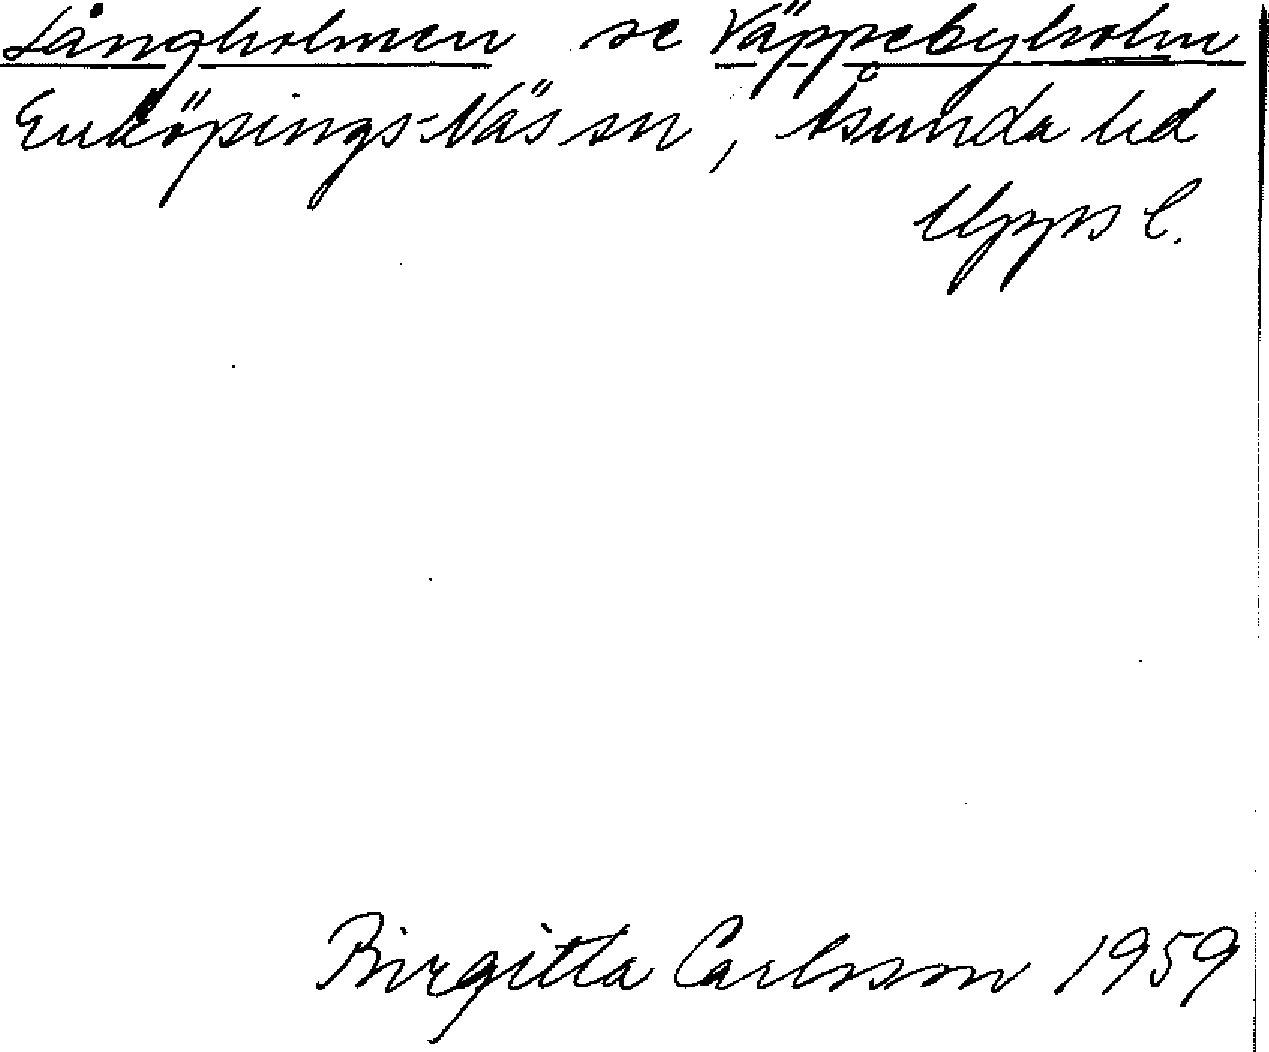 Långholmen se Väppebyholm
Enköpings-Näs sn, Åsunda hd
Upps l.
Birgitta Carlsson 1959